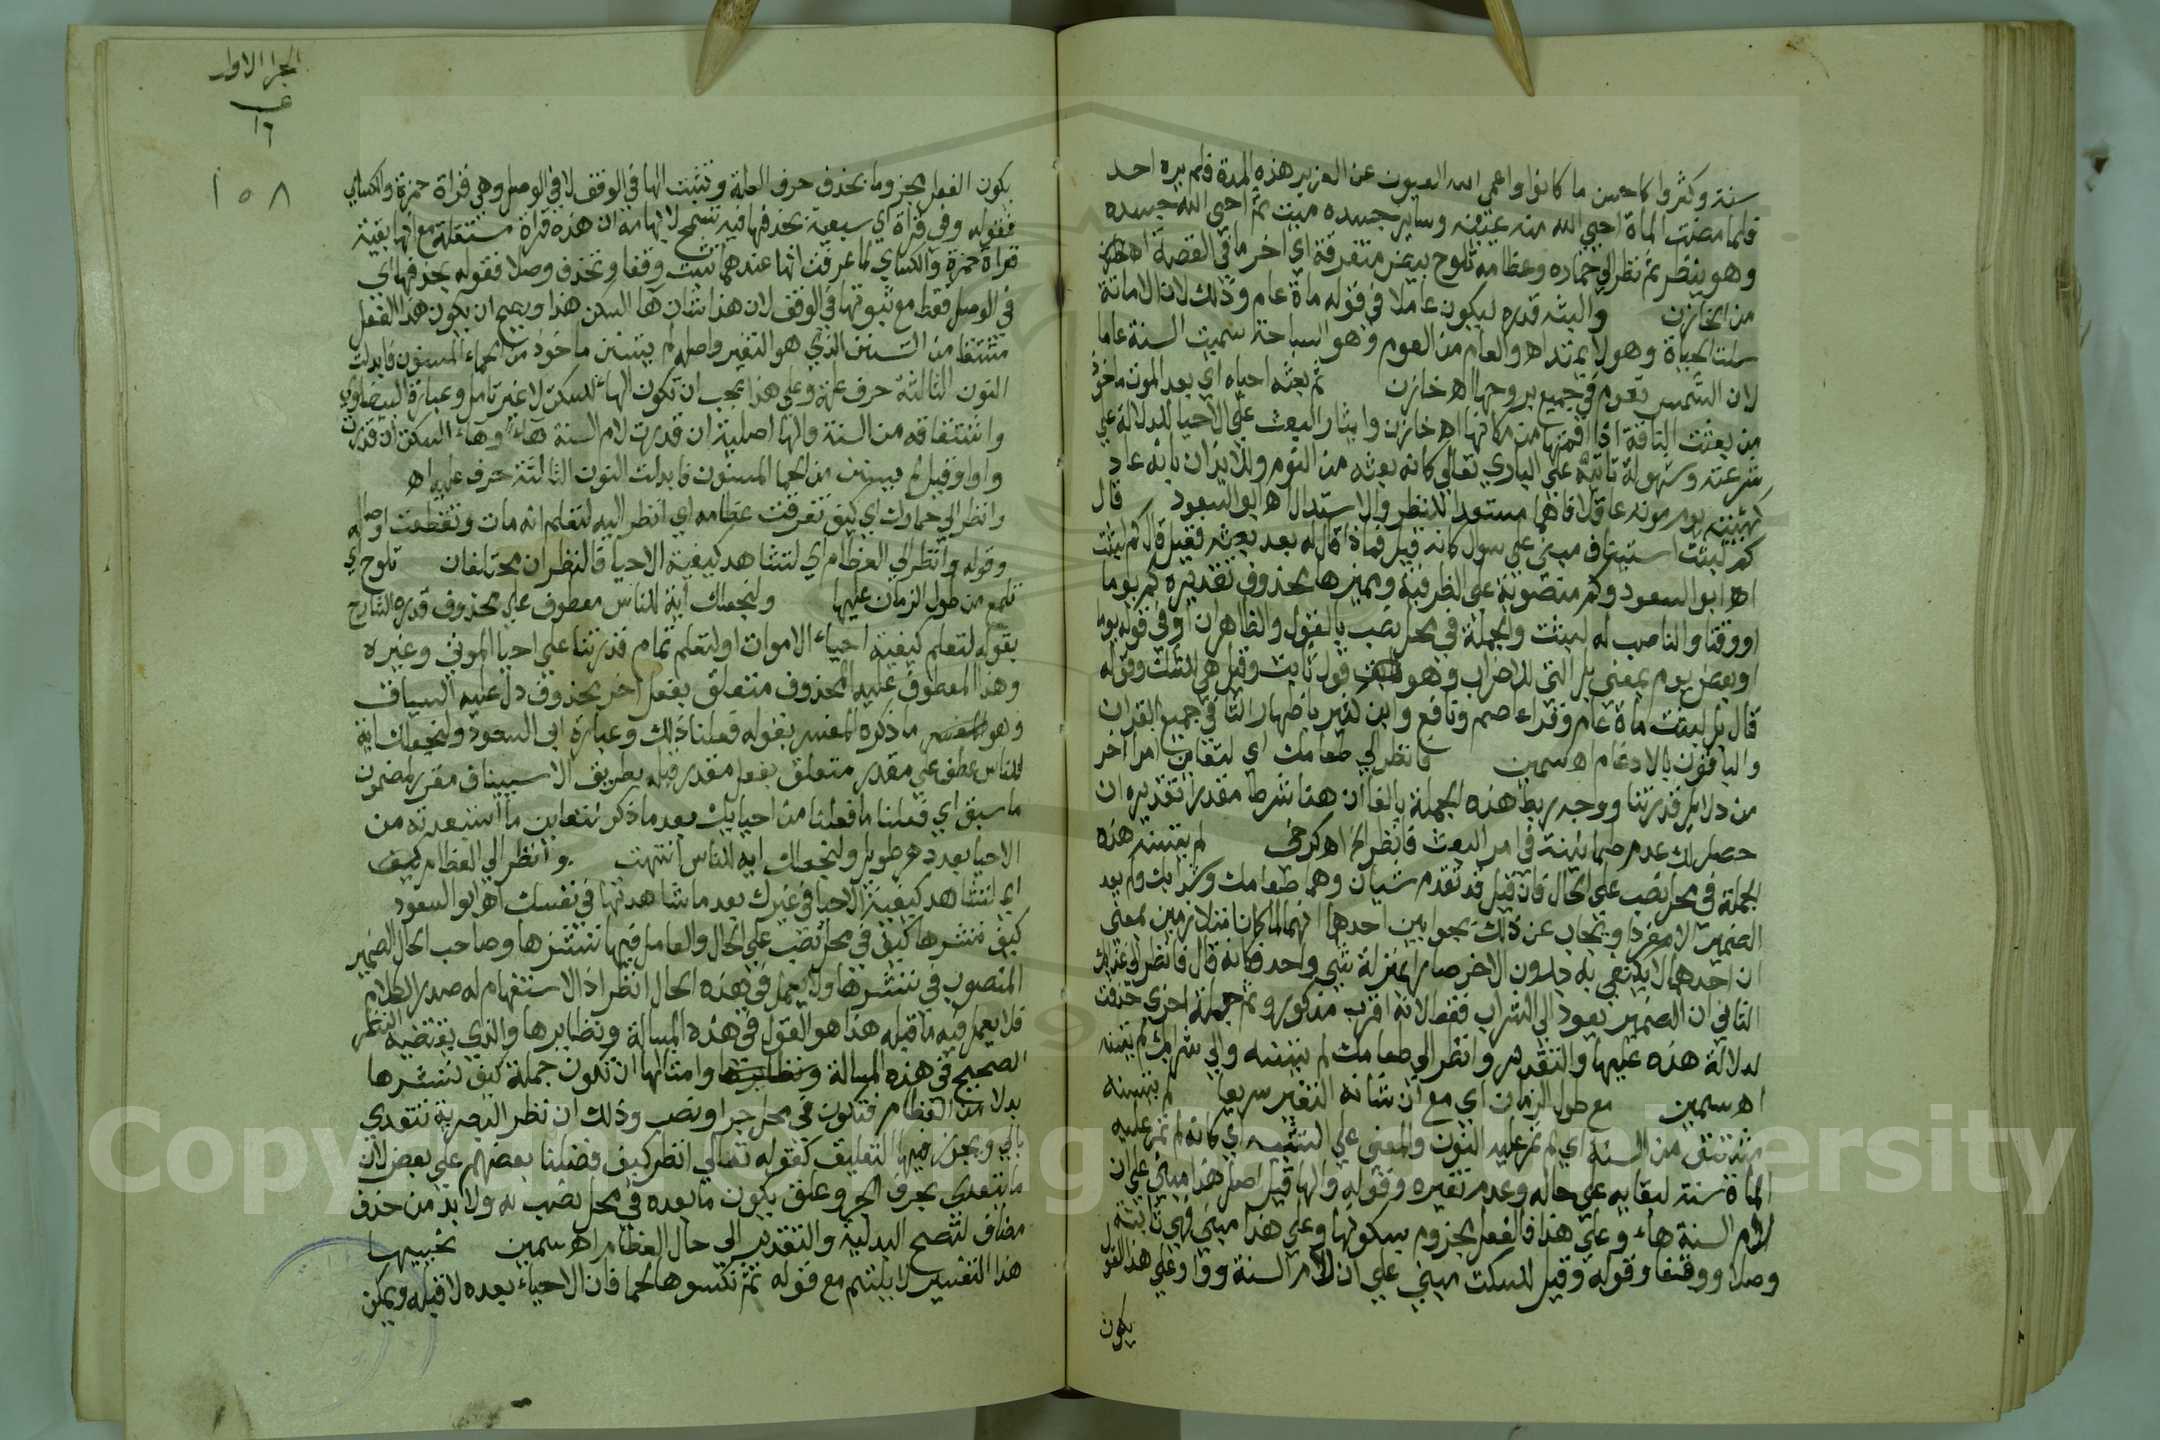 سنة وكثروا كاحسن ما كانوا واعمى الله العيون عن العزير هذه المدة فلم يره احد
فلما مضت الماة احيى الله منه عينيه وساير جسده ميت ثم احيى الله جسده
وهو ينظر ثم نظر الى حماره وعظامه تلوح بيض متفرقة اي اخر ما في القصة اه
من الخازن والبثه قدره ليكون عاملا في قوله ماة عام وذلك لان الاماتة
سلب الحياة وهو لا يمتد اه والعام من العوم وهو السباحة سميت السنة عاما
لان الشمس تعوم في جميع بروجها اه خازن ثم بعثه احياه اي بعد الموت ماخوذ
من بعثت الناقة اذا اقمتها من مكانها اه خازن وايثار البعث على الاحيا للدلالة على
سرعته وسهولة تاتيه على الباري تعالى كانه بعثه من النوم وللايذان بانه عاد
كهيئته يوم موته عاقلا فاهما مستعدا للنظر والاستدلال اه ابو السعود قال
كم لبثت استيناف مبني على سوال كانه قيل فماذا قال له بعد بعثه فقيل قال كم لبثت
اه ابو السعود وكم منصوبة على الظرفية ومميزها محذوف تقديره كم يوما
او وقتا والناصب له لبثت والجملة في محل نصب بالقول والظاهر ان او في قوله يوما
او بعض يوم بمعنى بل التي للاضراب وهو قول ثابت وقيل هي للشك وقوله
قال بل لبثت ماة عام وقراء عاصم ونافع وابن كثير باظهار الثا في جميع القران
والباقون بالادغام اه سمين فانظر الى طعامك اي لتعاين امرا اخر
من دلايل قدرتنا ووجه ربط هذه الجملة بالفا ان هنا شرطا مقدرا تقديره ان
حصل لك عدم طمانينة في امر البعث فانظر الخ اه كرخي لم يتسنه هذه
الجملة في محل نصب على الحال فان قيل قد تقدم شيان وهما طعامك وشرابك ولم يعد
الضمير الا مفردا ويجاب عن ذلك بجوابين احدهما انهما لما كانا متلازمين بمعنى
ان احدهما لا يكتفى به بدون الاخر صارا بمنزلة شي واحد فكانه قال فانظر الى غذايك
الثاني ان الضمير يعود الى الشراب فقط لانه اقرب مذكور وثم جملة اخرى حذفت
لدلالة هذه عليها والتقدير وانظر الى طعامك لم يتسنه والى شرابك لم يتسنه
اه سمين مع طول الزمان اي مع ان شانه التغير سريعا لم يتسنه
مشتق من السنة اي لم تمر عليه السنون والمعنى على التشبيه اي كانه لم تمر عليه
الماة سنة لبقايه على حاله وعدم تغيره وقوله والها قيل اصل هذا مبني على ان
لام السنة هاء وعلى هذا فالفعل مجزوم بسكونها وعلى هذا مبني فهي ثابتة
وصلا ووقفا وقوله وقيل للسكت مبني على ان لام السنة واو وعلى هذا القول
يكون
الجزا الاول
١٦
١٥٨
يكون الفعل مجزوما بحذف حرف العلة وتثبت الها في الوقف لا في الوصل وهي قراة حمزة والكساي
فقوله وفي قراة اي سبعية بحذفها فيه تسمح لايهامه ان هذه قراة مستقلة مع انها بقية
قراة حمزة والكساي لما عرفت انها عندهما تثبت وقفا وتحذف وصلا فقوله بحذفها اي
في الوصل فقط مع ثبوتها في الوقف لان هذا شان ها السكت هذا ويصح ان يكون هذا الفعل
مشتقا من التسنن الذي هو التغير واصله لم يتسنن ماخوذ من الحماء المسنون فابدلت
النون الثالثة حرف علة وعلى هذا يجب ان تكون الهاء للسكت لا غير تامل وعبارة البيضاوي
واشتقاقه من السنة والها اصلية ان قدرت لام السنة هاء وهاء السكت ان قدرت
واوا وقيل لم يتسنن من الحما المسنون فابدلت النون الثالثة حرف علة اه
وانظر الى حمارك اي كيف تفرقت عظامه اي انظر اليه لتعلم انه مات وتقطعت اوصاله
وقوله وانظر الى العظام اي لتشاهد كيفية الاحيا فالنظران مختلفان تلوح اي
تلمع من طول الزمان عليها ولنجعلك اية للناس معطوف على محذوف قدره الشارح
بقوله لتعلم كيفية احياء الاموات او لتعلم تمام قدرتنا على احيا الموتى وغيره
وهذا المعطوف عليه المحذوف متعلق بفعل اخر محذوف دل عليه السياق
وهو ما ذكره المفسر بقوله فعلنا ذلك وعبارة ابي السعود ولنجعلك اية
للناس عطف على مقدر متعلق بفعل مقدر قبله بطريق الاستيناف مقرر لمضمون
ما سبق اي فعلنا ما فعلنا من احيايك بعد ما ذكر لتعاين ما استبعدته من
الاحيا بعد دهر طويل ولنجعلك اية للناس انتهت وانظر الى العظام كيف
اي لتشاهد كيفية الاحيا في غيرك بعد ما شاهدتها في نفسك اه ابو السعود
كيف ننشرها كيف في محل نصب على الحال والعامل فيها ننشزها وصاحب الحال الضمير
المنصوب في ننشرها ولا يعمل في هذه الحال انظر اذ الاستفهام له صدر الكلام
فلا يعمل فيه ما قبله هذا هو القول في هذه المسالة ونظايرها والذي يقتضيه النظر
الصحيح في هذه المسالة وامثالها ان تكون جملة كيف ننشرها
بدلا من العظام فتكون في محل جر او نصب وذلك ان نظر البصرية تتعدى
بالى ويجوز فيها التعليق كقوله تعالى انظر كيف فضلنا بعضهم على بعض لان
ما يتعدى بحرف الجر وعلق يكون ما بعده في محل نصب به ولا بد من حذف
مضاف لتصح البدلية والتقدير الى حال العظام اه سمين نحييها
هذا التفسير لا يلتيم مع قوله ثم نكسوها لحما فان الاحياء بعده لا قبله ويمكن
Copyright © King Saud University